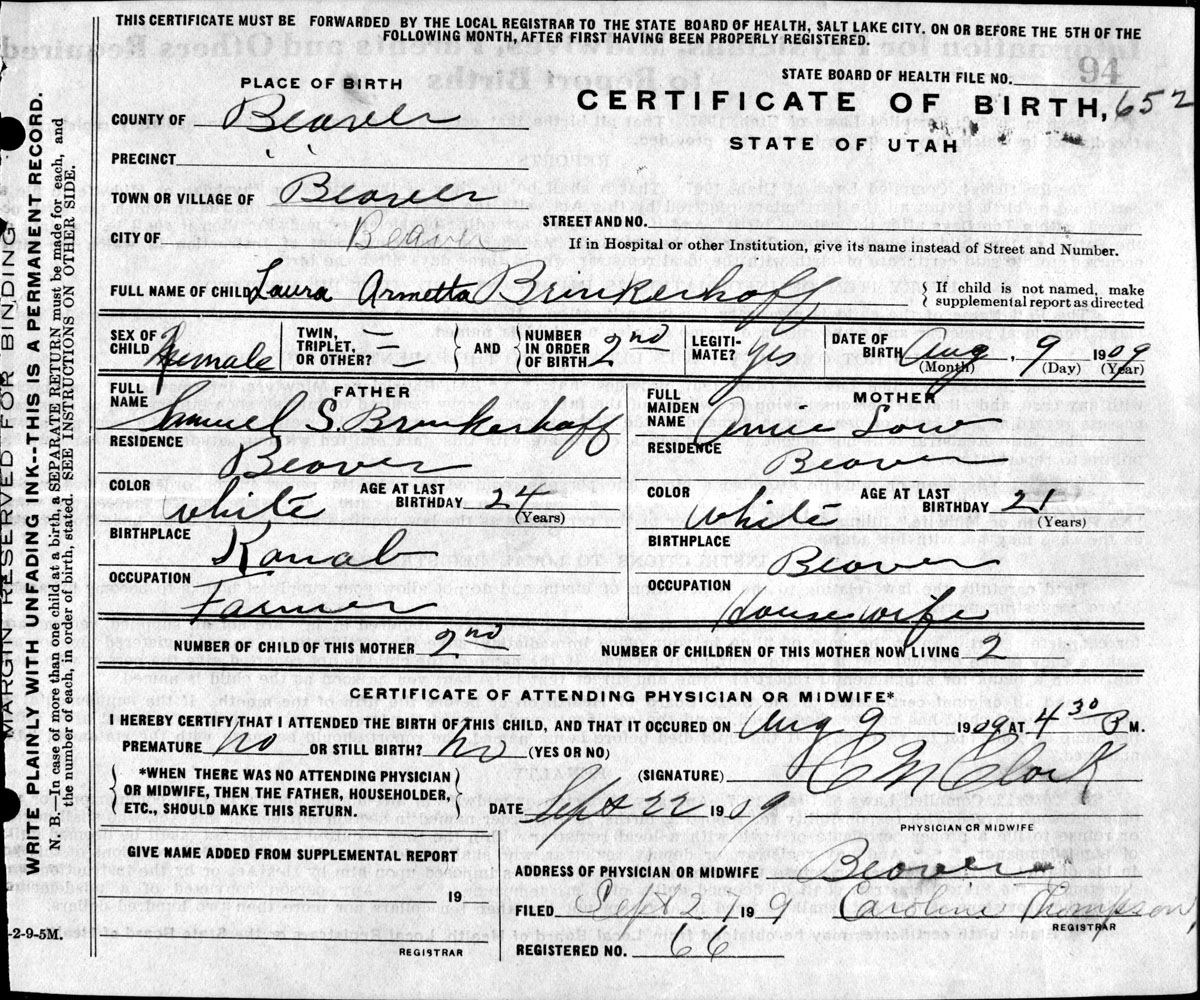 THIS CERTIFICATE MUST BE FORWARDED BY THE LOCAL REGISTRAR TO THE STATE BOARD OF HEALTH, SALT LAKE CITY, ON OR BEFORE THE 5TH OF THE
FOLLOWING MONTH, AFTER FIRST HAVING BEEN PROPERLY REGISTERED.
STATE BOARD OF HEALTH FILE NO. 94
PLACE OF BIRTH
CERTIFICATE OF BIRTH, 652
STATE OF UTAH
COUNTY OF Beaver
PRECINCT " "
TOWN OR VILLAGE OF Beaver
STREET AND NO.
CITY OF Beaver
If in Hospital or other Institution, give its name instead of Street and Number.
FULL NAME OF CHILD Laura Armetta Brinkerhoff
{ If child is not named, make
supplemental report as directed
SEX OF CHILD Female
TWIN, TRIPLET, OR OTHER? =
AND
NUMBER IN ORDER OF BIRTH 2nd
LEGITIMATE? Yes
DATE OF BIRTH Aug, 9 1909
(Month) (Day) (Year)
FATHER
FULL NAME Samuel S. Brinkerhoff
RESIDENCE
Beaver
COLOR White AGE AT LAST BIRTHDAY 24
(Years)
BIRTHPLACE
Kanab
OCCUPATION
Farmer
MOTHER
FULL MAIDEN NAME Annie Low
RESIDENCE
Beaver
COLOR White AGE AT LAST BIRTHDAY 21
(Years)
BIRTHPLACE
Beaver
OCCUPATION
Housewife
NUMBER OF CHILD OF THIS MOTHER 2nd NUMBER OF CHILDREN OF THIS MOTHER NOW LIVING 2
CERTIFICATE OF ATTENDING PHYSICIAN OR MIDWIFE*
I HEREBY CERTIFY THAT I ATTENDED THE BIRTH OF THIS CHILD, AND THAT IT OCCURED ON Aug 9 1909 AT 4 30 P M.
PREMATURE No OR STILL BIRTH? No (YES OR NO)
*WHEN THERE WAS NO ATTENDING PHYSICIAN
OR MIDWIFE, THEN THE FATHER, HOUSEHOLDER,
ETC., SHOULD MAKE THIS RETURN
(SIGNATURE) C M Clark
DATE Sept 22 1909
PHYSICIAN OR MIDWIFE
GIVE NAME ADDED FROM SUPPLEMENTAL REPORT
19
REGISTRAR
ADDRESS OF PHYSICIAN OR MIDWIFE Beaver
FILED Sept 21 199 Caroline Thompson
REGISTRAR
REGISTERED NO. 66
-2-9-5M.
MARGIN RESERVED FOR BINDING
WRITE PLAINLY WITH UNFADING INK--THIS IS A PERMANENT RECORD.
N. B.—In case of more than one child at a birth, a SEPARATE RETURN must be made for each, and
the number of each, in order of birth, stated. SEE INSTRUCTIONS ON OTHER SIDE.